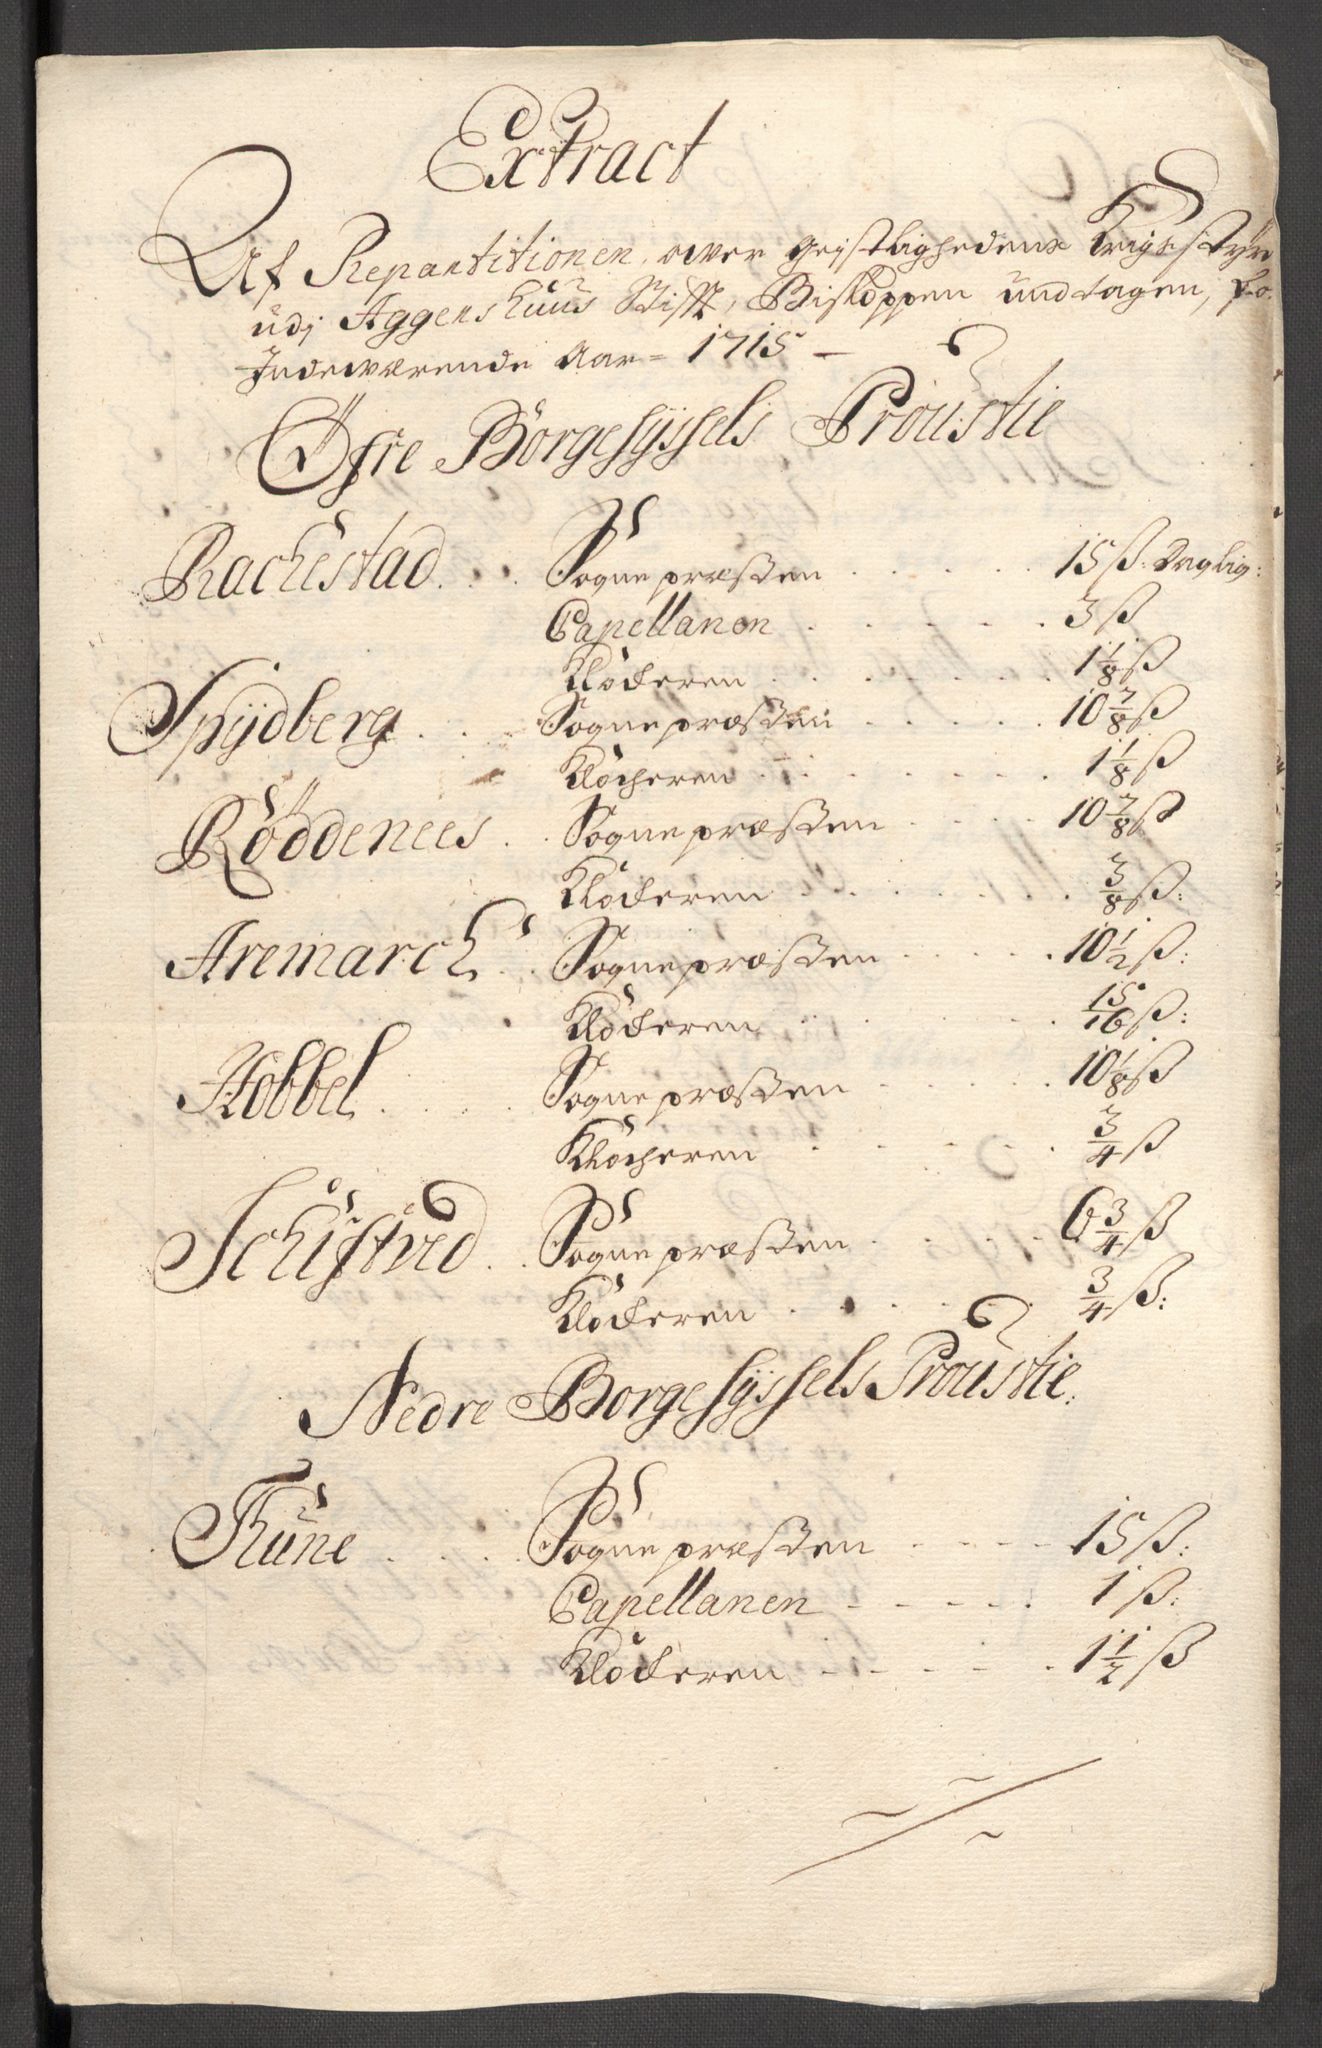 Extract
Af Repartitionen over Geistlighedens Krigs Styr
udj Aggershuus Stifft, Biskoppen undtagen, for
Indeværende Aar = 1715 –
Øfre Borgesyssels Proustie
Rachestad . . . Sogne præsten . . . . . 15 ß: daglig:
Capellanen . . . . . 3 ß
Klockeren . . . . . 1 1/8 ß
Spydberg . . . Sogne præsten . . . . . 10 7/8 ß
Klöcheren . . . . . 1 1/8 ß
Röddenees . . Sogne præsten . . . . 10 7/8 ß
Klockeren . . . . . 3/8 ß:
Aremarch . . Sogne præsten . . . . . 10 1/2 ß:
Klockeren . . . . . 15/16 ß:
Hobbel . . . . Sogne præsten . . . . . 10 1/8 ß
Klöcheren . . . . . 3/4 ß
Schiftved . . Sogne præsten . . . . . 6 3/4 ß
Klockeren . . . . . 3/4 ß:
Nedre Borgesyssels Proustie:
Thune . . . . Sogne præsten - - - - - 15 ß:
Capellanen - - - - - 1 ß:
Klockeren - - - - - 1 1/2 ß